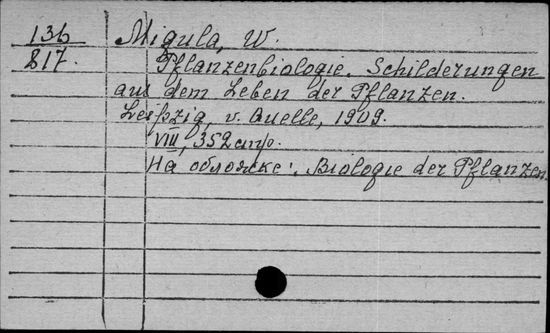 136
817.
Migula, W.
Pflanzenbiologie. Schilderungen
aus dem Leben der Pflanzen.
Leipzig, v. Quelle, 1909.
VIII, 352 стр.
На обложке: Biologie der Pflanzen